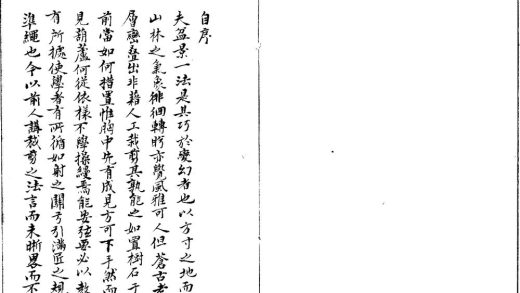 自序
夫盆景一法是甚巧於變幻者也以方寸之地而
山林之氣象徘徊轉盻亦覺風雅可人但蒼古老
層巒叠出非藉人工裁剪其孰能之如置樹石于
前當如何措置惟胸中先有成見方可下手然而
見葫蘆何從依樣不學操縵焉能安弦要必以教
有所據使學者有所循如射之關弓引滿匠之規
準繩也今以前人講裁剪之法言而未晰畧而不